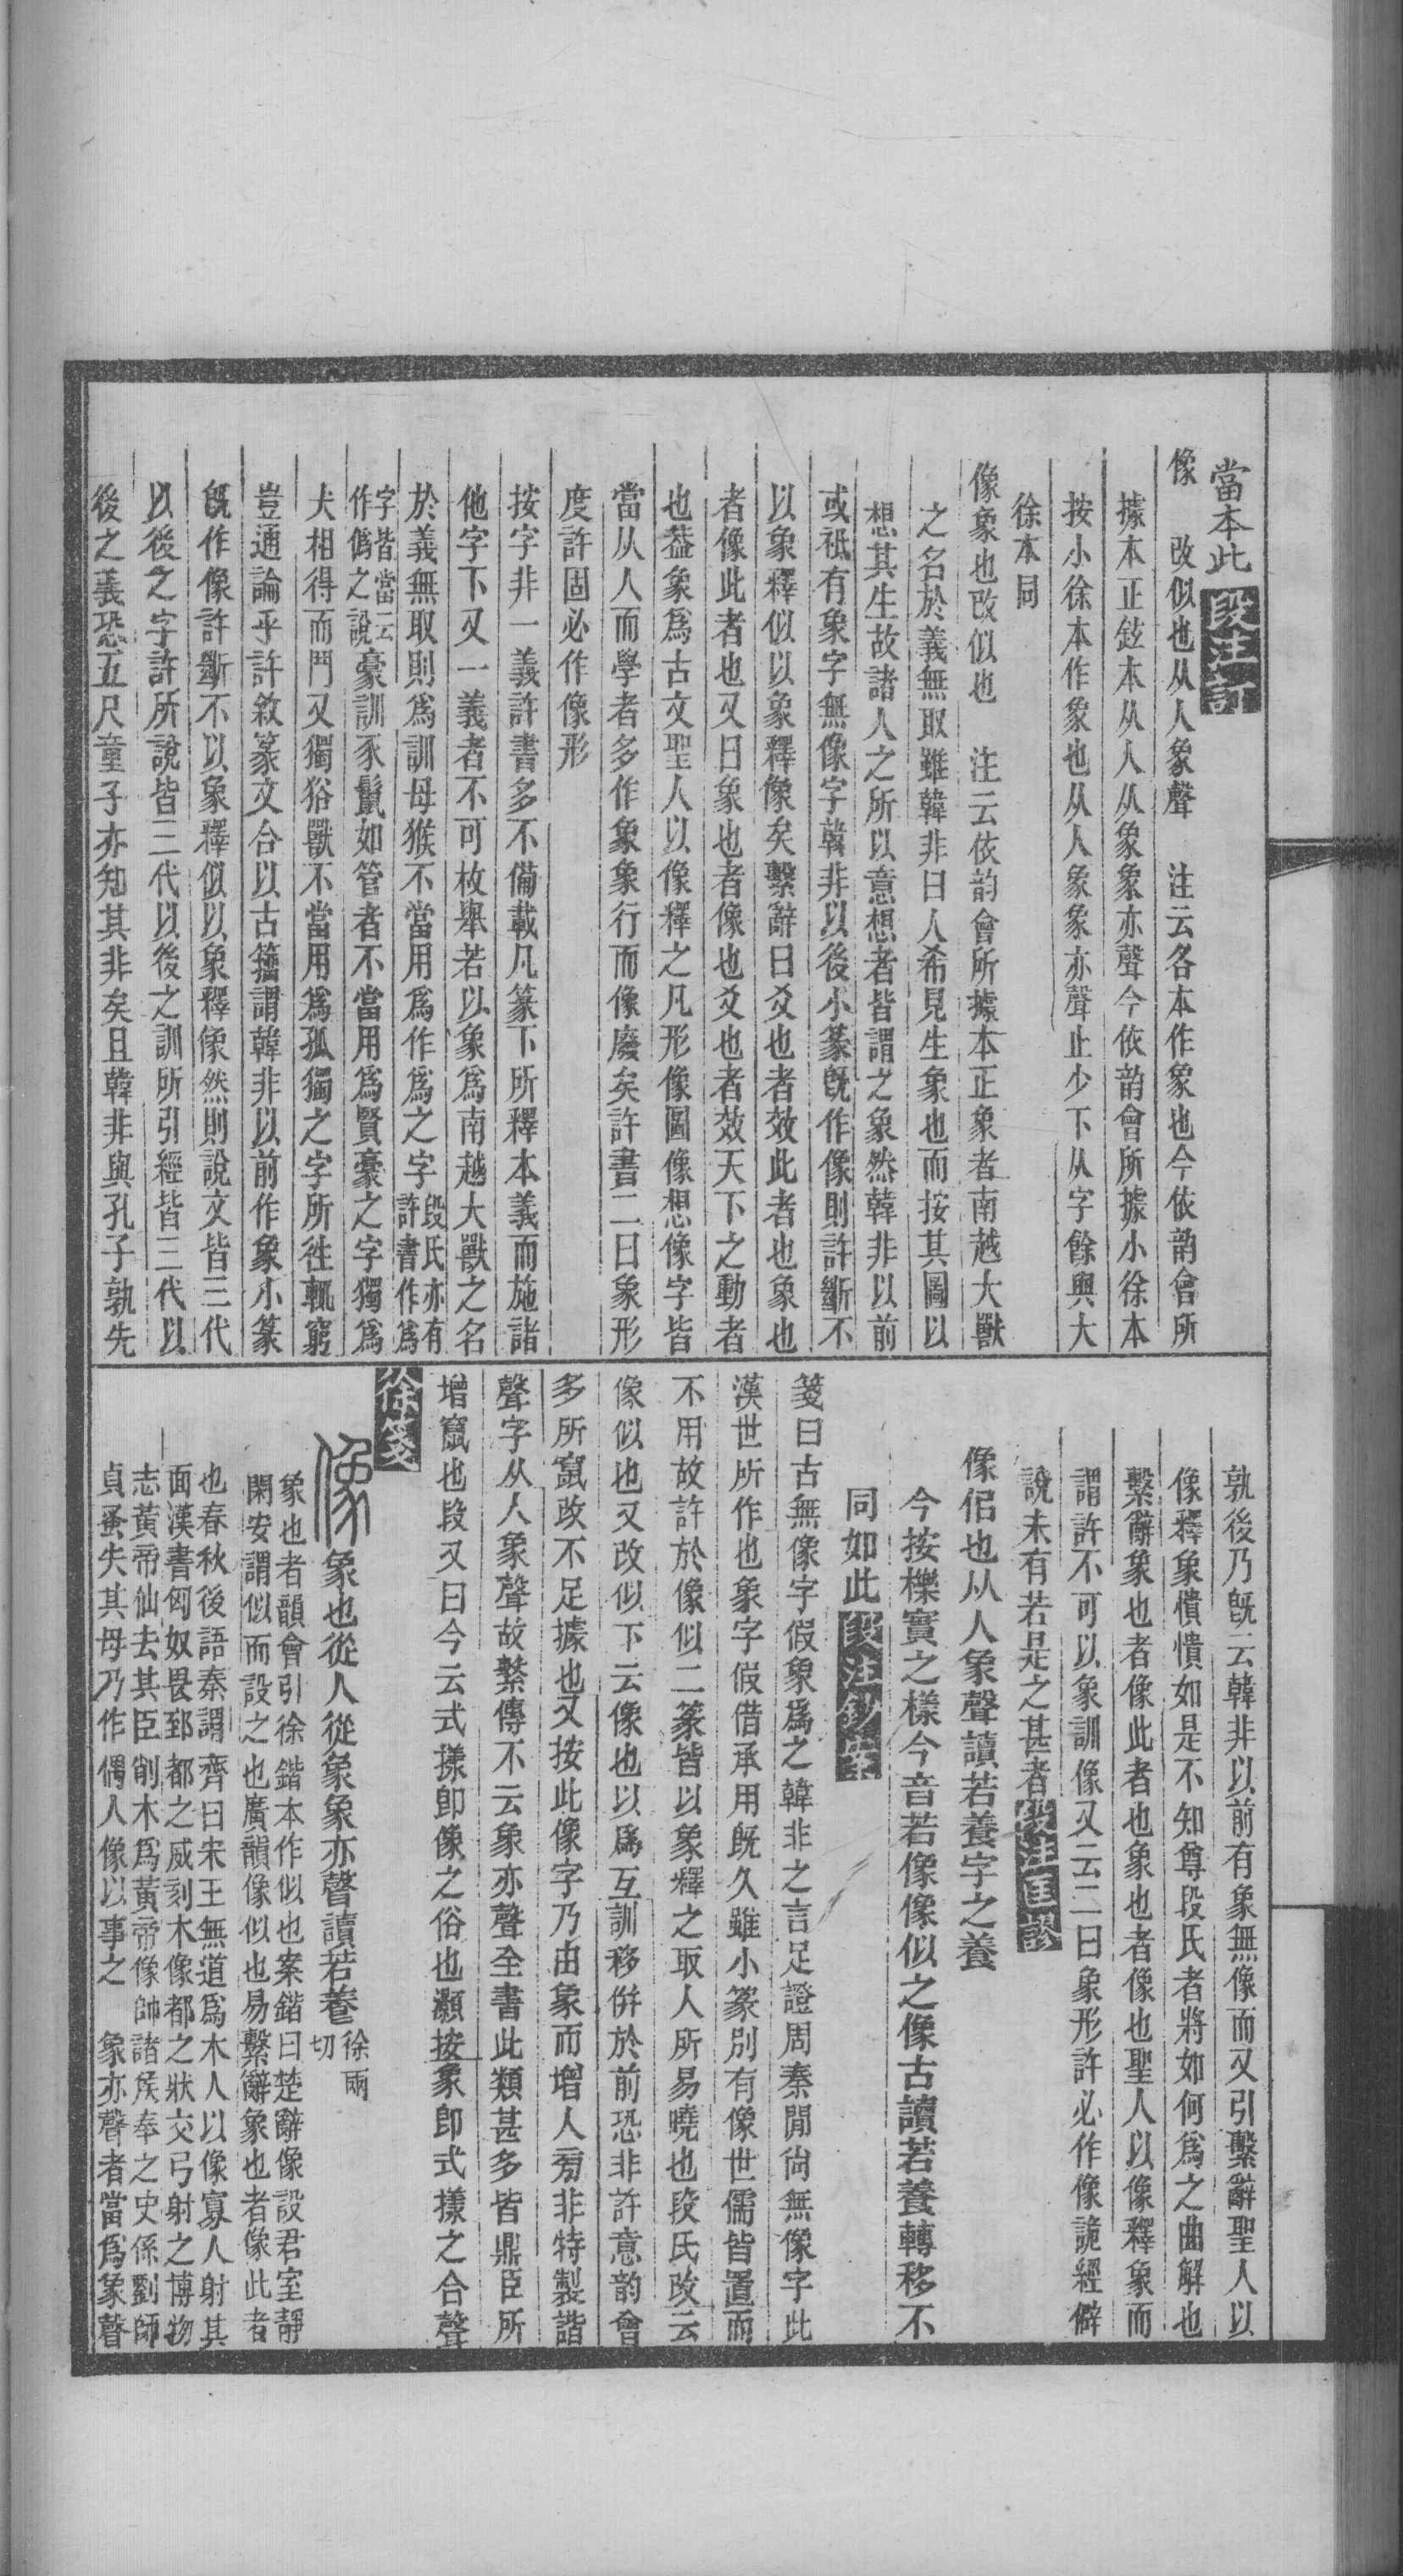 當本此段注訂
像　改似也从人象聲　注云各本作象也今依韵會所
據本正鉉本从人从象象亦聲今依韵會所據小徐本
按小徐本作象也从人象象亦聲止少下从字餘與大
徐本同
像象也改似也　注云依韵會所據本正象者南越大獸
之名於義無取雖韓非曰人希見生象也而按其圖以
想其生故諸人之所以意想者皆謂之象然韓非以前
或祗有象字無像字韓非以後小篆旣作像則許斷不
以象釋似以象釋像矣繫辭曰爻也者效此者也象也
者像此者也又曰象也者像也爻也者效天下之動者
也葢象爲古文聖人以像釋之凡形像圖像想像字皆
當从人而學者多作象象行而像廢矣許書二曰象形
度許固必作像形
按字非一義許書多不備載凡篆下所釋本義而施諸
他字下又一義者不可枚舉若以象爲南越大獸之名
於義無取則爲訓母猴不當用爲作爲之字段氏亦有許書作爲
字皆當云作僞之說豪訓豕鬣如管者不當用爲賢豪之字獨爲
犬相得而鬥又獨狢獸不當用爲孤獨之字所徃輒窮
豈通論乎許敘篆文合以古籀謂韓非以前作象小篆
旣作像許斷不以象釋似以象釋像然則說文皆三代
以後之字許所說皆三代以後之訓所引經皆三代以
後之義恐五尺童子亦知其非矣且韓非與孔子孰先
孰後乃旣云韓非以前有象無像而又引繫辭聖人以
像釋象憒憒如是不知尊段氏者將如何爲之曲解也
繫辭象也者像此者也象也者像也聖人以像釋象而
謂許不可以象訓像又云二曰象形許必作像詭經僻
說未有若是之甚者段注匡謬
像侣也从人象聲讀若養字之養
今按櫟實之樣今音若像像似之像古讀若養轉移不
同如此段注鈔案
箋曰古無像字假象爲之韓非之言足證周秦閒尙無像字此
漢世所作也象字假借承用旣久雖小篆別有像世儒皆置而
不用故許於像似二篆皆以象釋之取人所易曉也段氏改云
像似也又改似下云像也以爲互訓移併於前恐非許意韵會
多所竄改不足據也又按此像字乃由象而增人㫄非特製諧
聲字从人象聲故繫傳不云象亦聲全書此類甚多皆鼎臣所
增竄也段又曰今云式㨾卽像之俗也灝按象卽式㨾之合聲
徐箋
像象也從人從象象亦聲讀若養徐兩切
象也者韻會引徐鍇本作似也案鍇曰楚辭像設君室靜
閑安謂似而設之也廣韻像似也易繫辭象也者像此者
也春秋後語秦謂齊曰宋王無道爲木人以像寡人射其
面漢書匈奴畏郅都之威刻木像都之狀交弓射之博物
志黃帝仙去其臣削木爲黃帝像帥諸侯奉之史係劉師
貞蚤失其母乃作偶人像以事之　象亦聲者當爲象聲